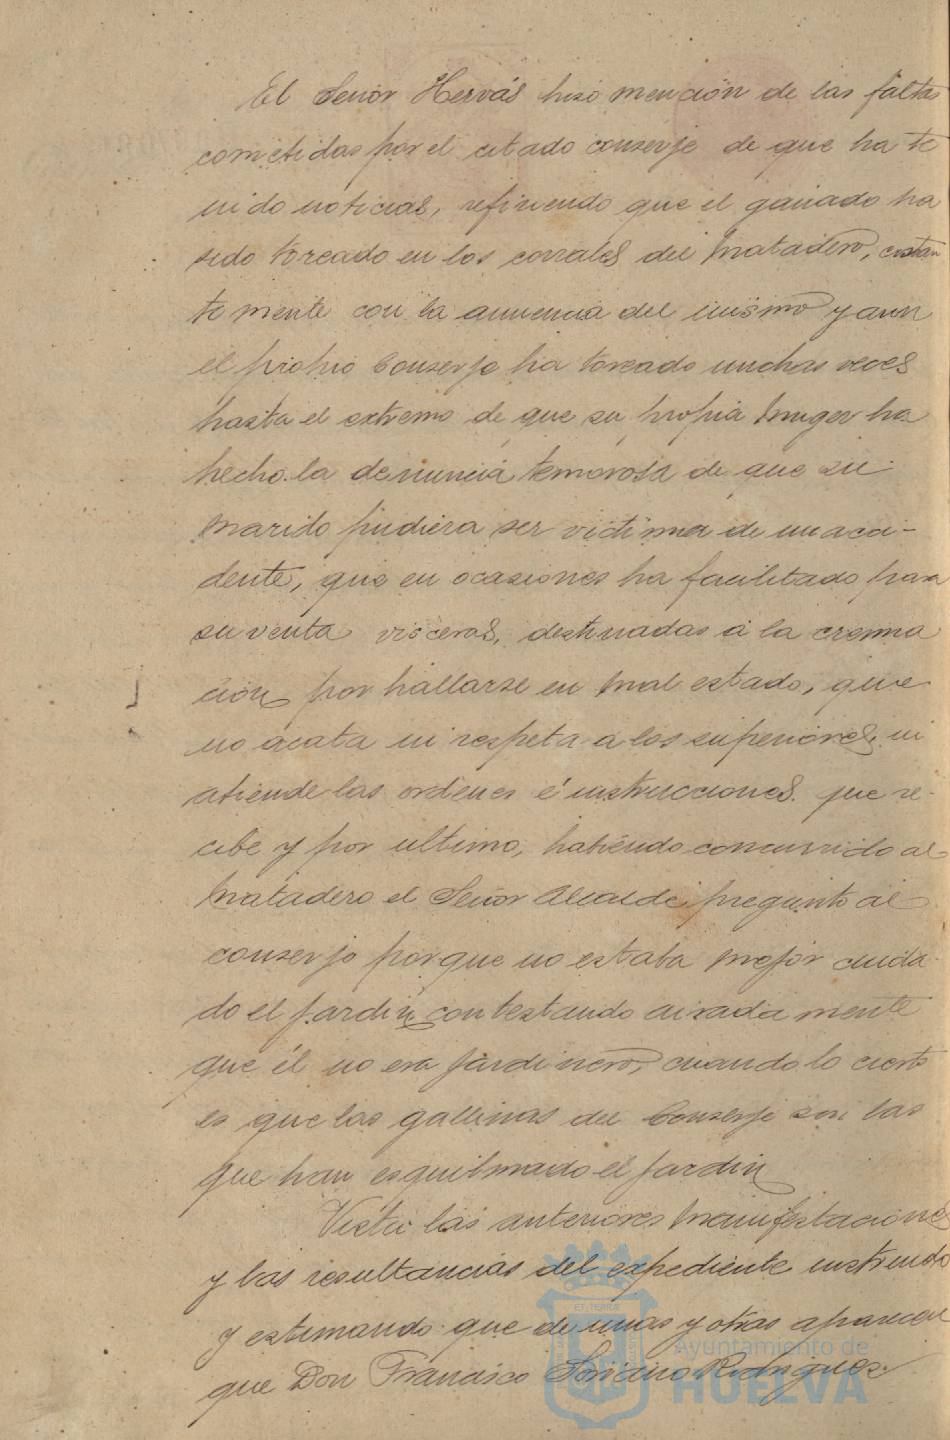 El Señor Hervás hizo mención de las faltas
cometidas por el citado conserje de que ha te
nido noticias, refiriendo que el ganado ha
sido toreado en los corrales del Matadero,
mente con la anuencia del mismo y aun
el propio Conserje ha toreado muchas veces
hasta el extremo de que su propia muger ha
hecho la denuncia temorosa de que su
marido pudiera ser victima de un acci-
dente, que en ocasiones ha facilitado para
su venta visceras, destinadas á la crema
ción por hallarse en mal estado, que
no acata ni respeta a los superiores, ni
atiende las ordenes é instrucciones que re-
cibe y por ultimo, habiendo concurrido al
Matadero el Señor Alcalde, preguntó al
conserje porque no estaba mejor cuida-
do el jardin, contestando airada mente
que él no era jardinero, cuando lo cierto
es que las gallinas del Conserje son las
que han esquilmado el jardin
Vista las anteriores manifestaciones
y las resultancias del expediente instruido
y estimando que de unas y otras aparece
que Don Francisco Soriano Rodriguez
Ayuntamiento de
HUELVA